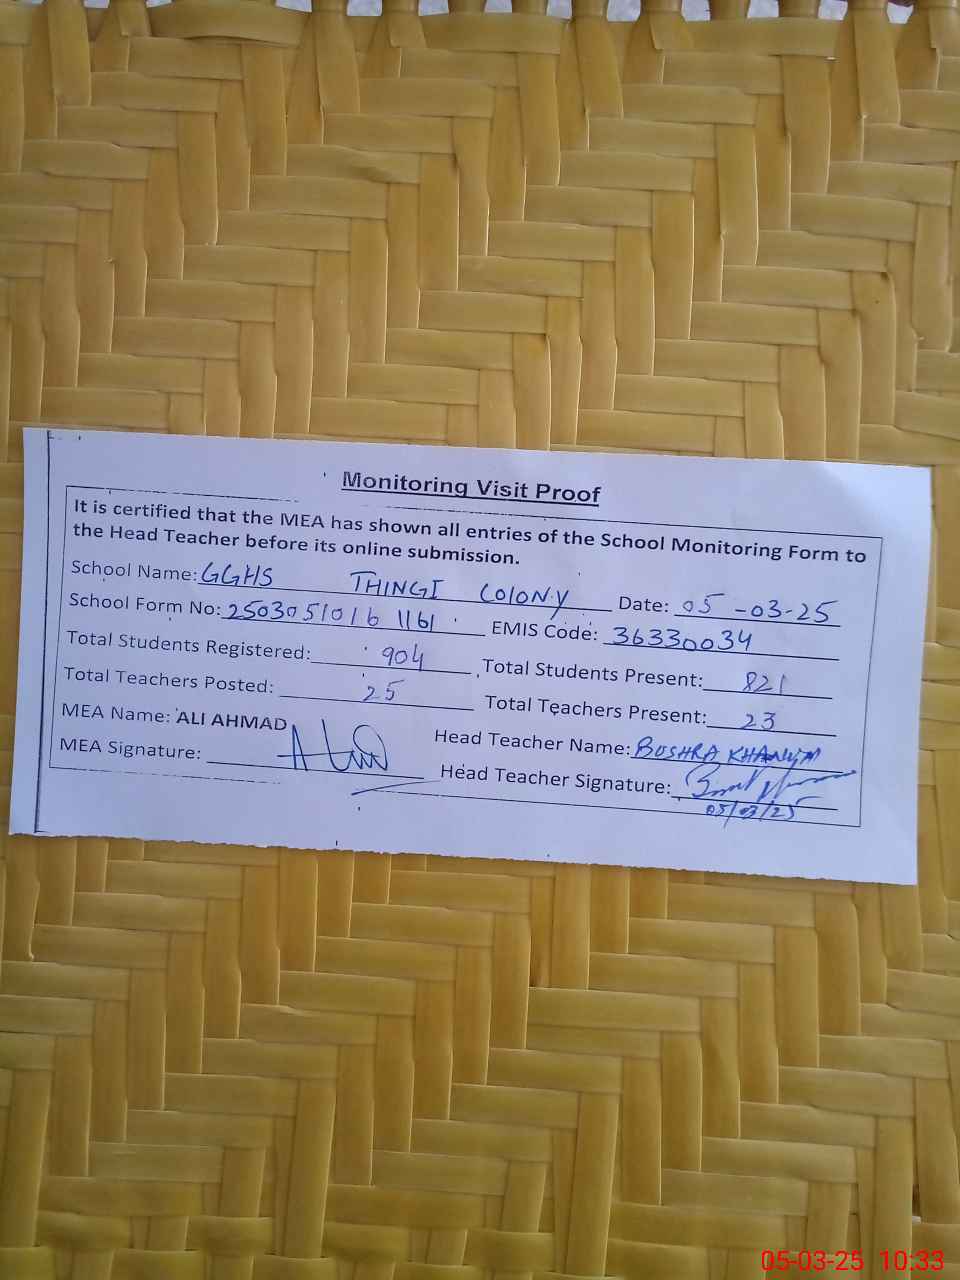 Monitoring Visit Proof
It is certified that the MEA has shown all entries of the School Monitoring Form to
the Head Teacher before its online submission.
School Name: GGHS THINGI COLONY Date: 05-03-25
School Form No: 25030510161161 EMIS Code: 36330034
Total Students Registered: 904 Total Students Present: 821
Total Teachers Posted: 25 Total Teachers Present: 23
MEA Name: ALI AHMAD Head Teacher Name: BUSHRA KHANUM
MEA Signature: Head Teacher Signature:
05/03/25
05-03-25 10:33